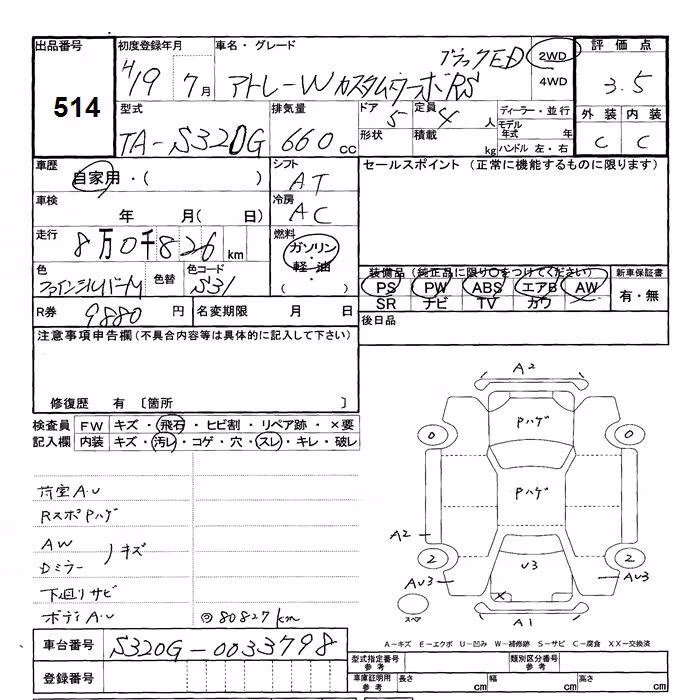 出品番号 初度登録年月 車名・グレード 評価点
514
H19 7月 アトレーW カスタムターボRS ブラックED 2WD 4WD 3.5
型式 排気量 ドア 5 定員 4人 ディーラー・並行 外装 内装
TA-S320G 660cc 形状 積載 kg モデル年式 年 ハンドル 左・右 C C
車歴 自家用・( ) シフト AT セールスポイント (正常に機能するものに限ります)
車検 年 月( 日) 冷房 AC
走行 8万0千826km 燃料 ガソリン・軽油・( )
色 ファインシルバーM 色替 色コード S31
装備品(純正品に限り○をつけてください) 新車保証書
PS PW ABS エアB AW 有・無
SR ナビ TV カワ
R券 9880円 名変期限 月 日 後日品
注意事項申告欄(不具合内容等は具体的に記入して下さい)
修復歴 有 〔箇所 〕
検査員 FW キズ・飛石・ヒビ割・リペア跡・×要
記入欄 内装 キズ・汚レ・コゲ・穴・スレ・キレ・破レ
荷室A.U
RスポPハゲ
AW
Dミラー )キズ
下廻リサビ
ボディA.U
◎80827km
A2
Pハゲ
0 0
Pハゲ
A2
2 2
U3
AU3 AU3
×
スペア A1
A-キズ E-エクボ U-凹み W-補修跡 S-サビ C-腐食 XX-交換済
車台番号 S320G-0033798
登録番号
型式指定番号 参考 類別区分番号 参考
車庫証明用 参考 長さ cm 幅 cm 高さ cm